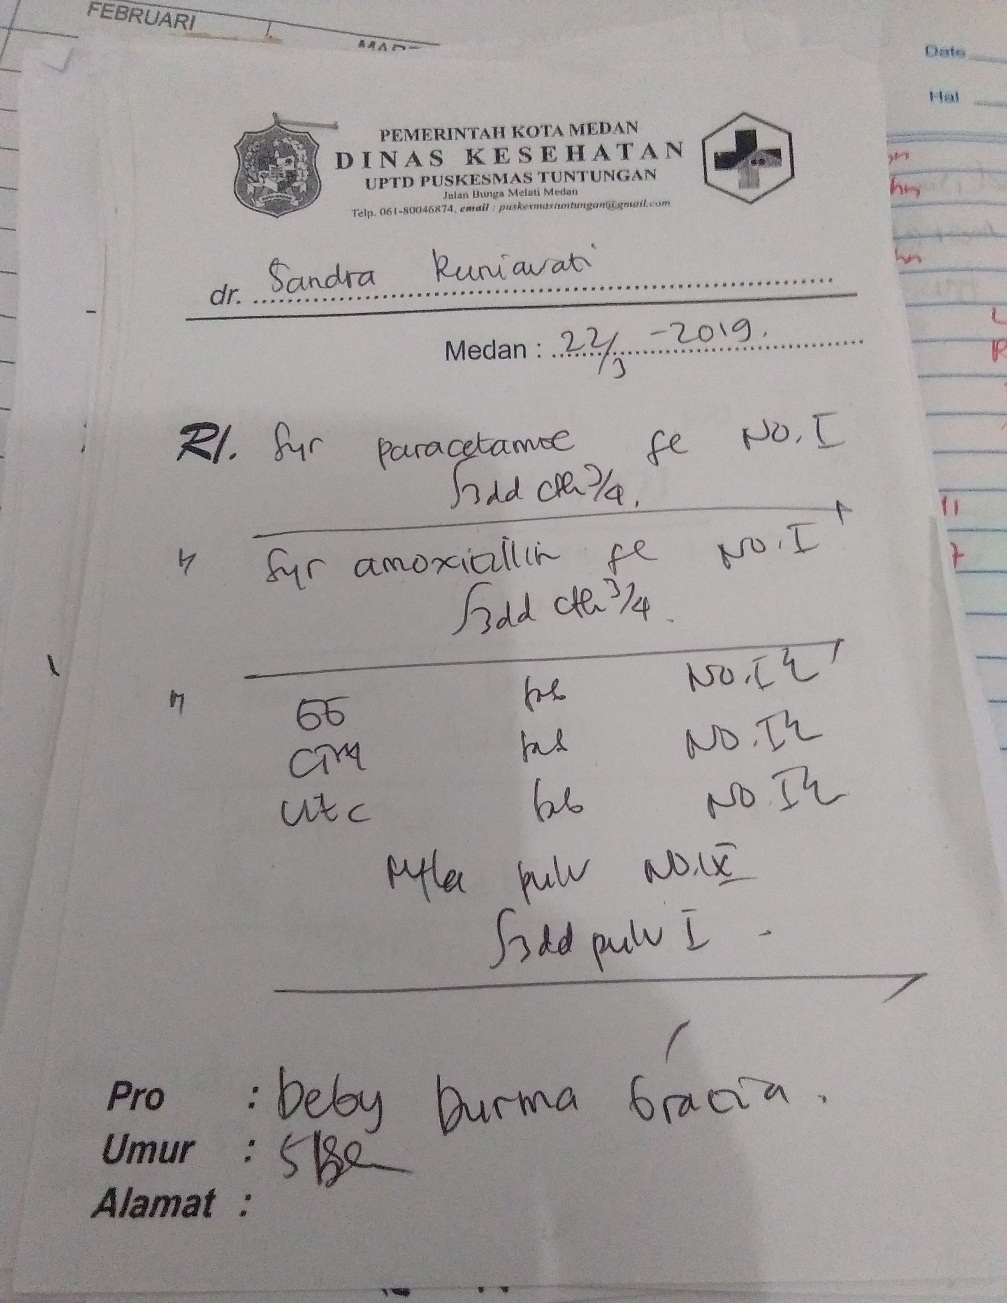 FEBRUARI
Date
Hal
PEMERINTAH KOTA MEDAN
DINAS KESEHATAN
UPTD PUSKESMAS TUNTUNGAN
Jalan Bunga Melati Medan
Telp. 061-80046874, email : puskesmastuntungan@gmail.com
dr. Sandra Kuniawati
Medan : 22/3 - 2019.
R/. Syr paracetamol fl No. I
∫3dd cth 3/4.
Syr amoxicillin fl No. I
∫3dd cth 3/4.
GG tab No. I
CTM tab No. I
Vit c tab No. I
Mfla pulv No. IX
∫3dd pulv I
Pro : Deby Durma Gracia.
Umur : 5
Alamat :